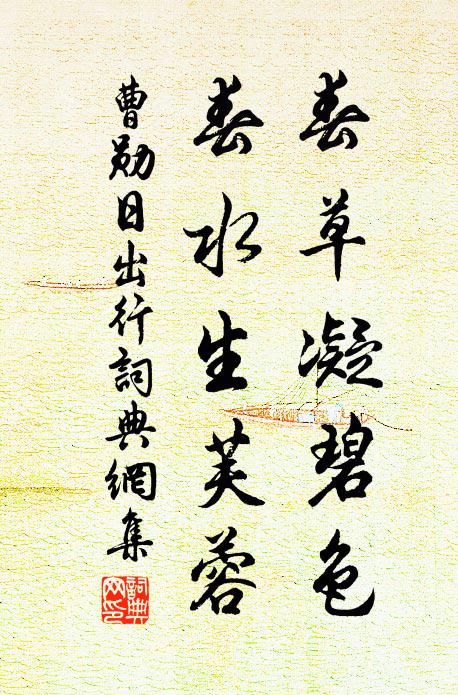 春草凝碧色
春水生芙蓉
曹勛日出行詞典網集
詞典
网印